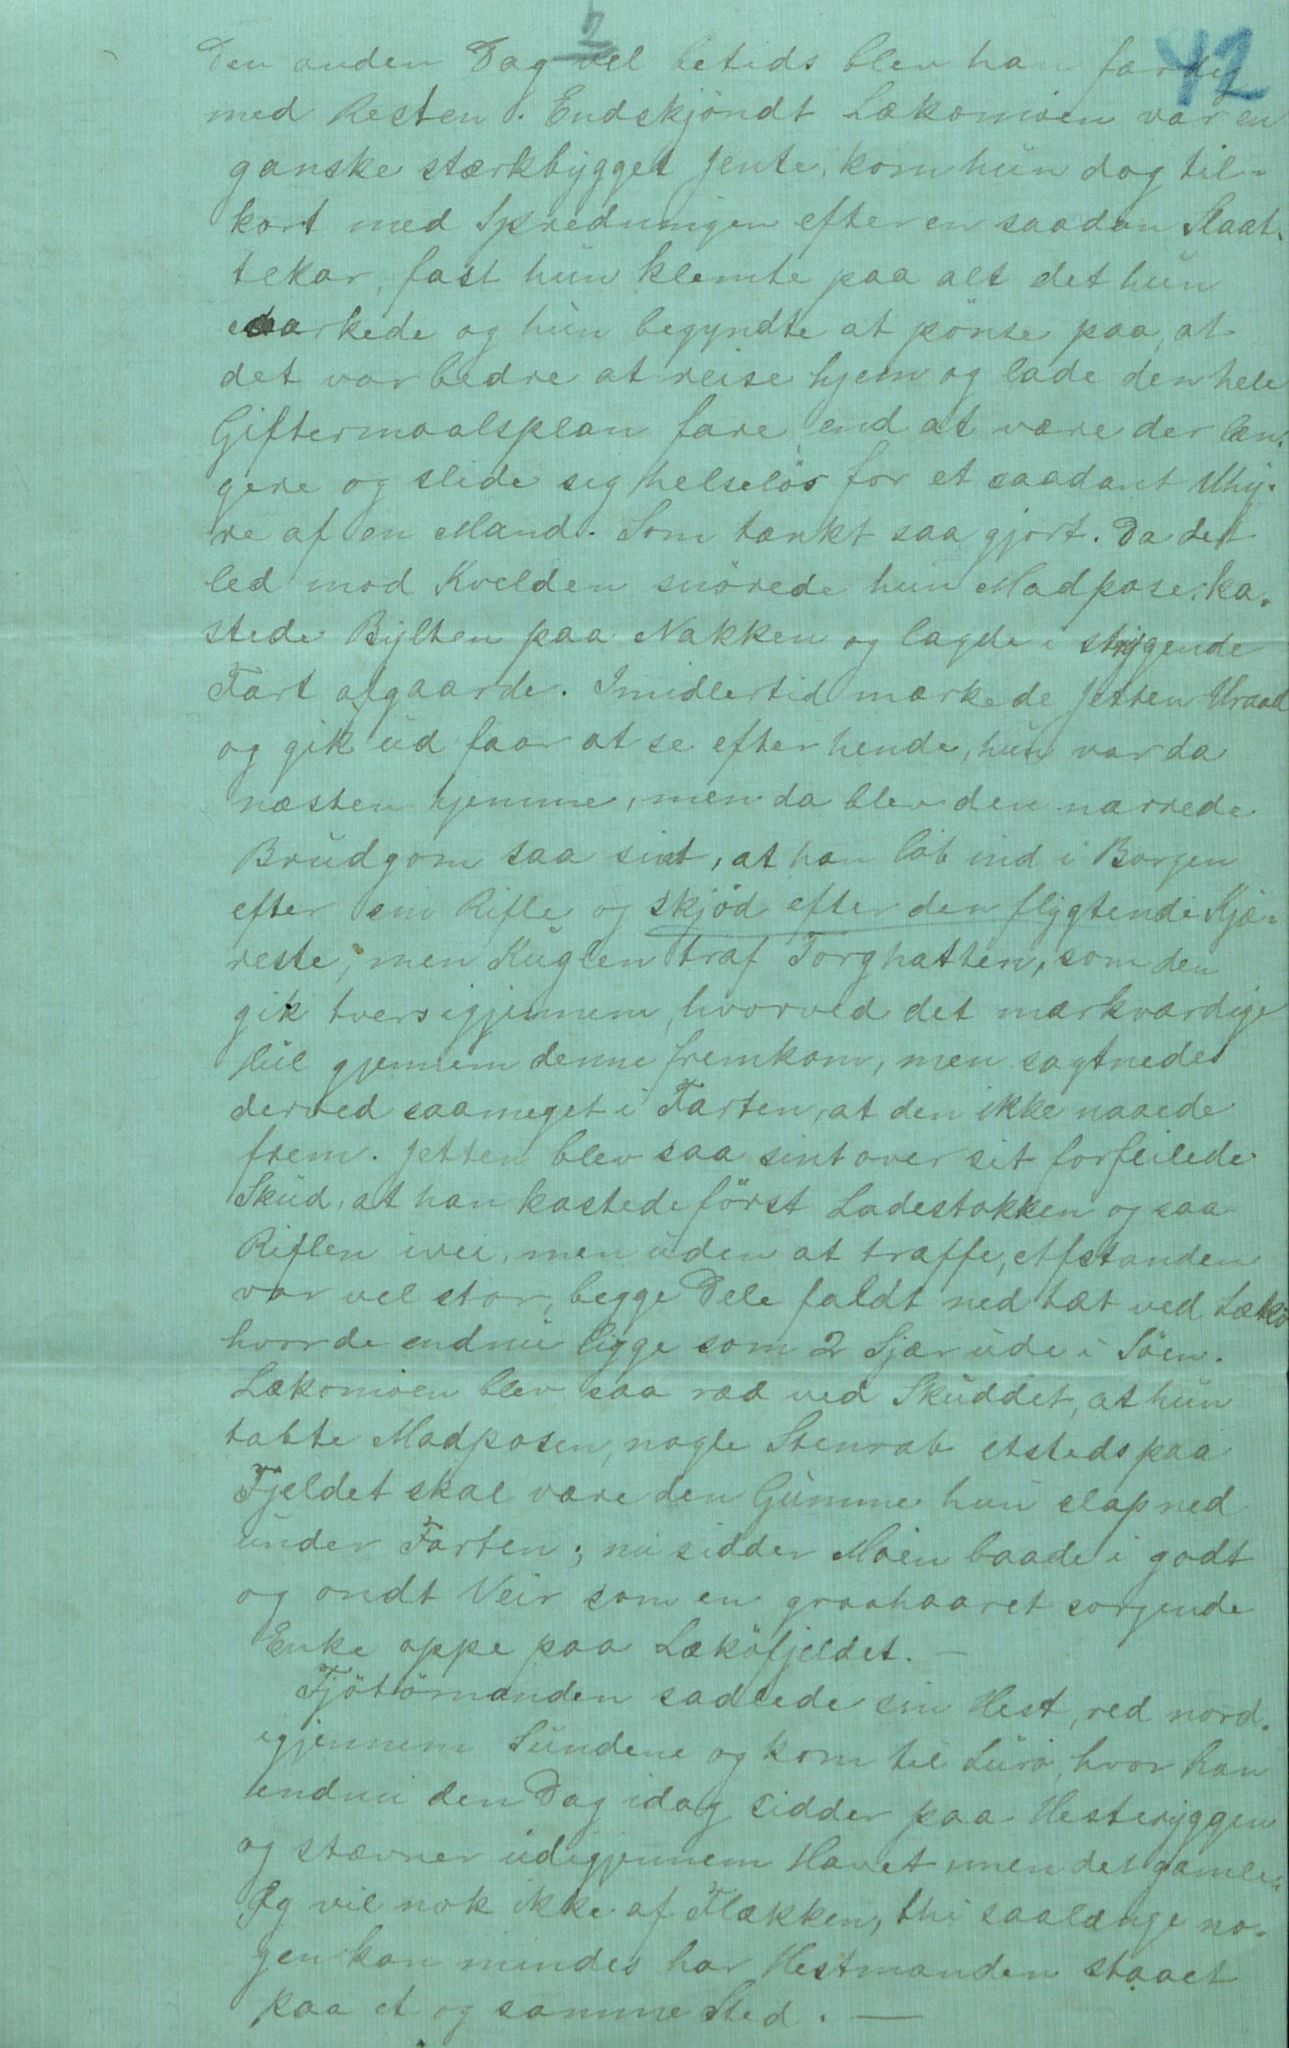 7
42
Den anden Dag vel betids blev han færdig
med Resten. Endskjöndt Lækomöen var en
ganske stærkbygget Jente, kom hun dog til-
kort med Spredningen efter en saadan Slaat-
tekar, fast hun klemte paa alt det hun
orkede og hun begyndte at pönse paa, at
det var bedre at reise hjem og lade den hele
Giftermaalsplan fare, end at være der læn-
gere og slide sig helselös for et saadant Uhy-
re af en Mand. Som tænkt saa gjort. Da det
led mod Kvelden snörede hun Madpose, ka-
stede Bylten paa Nakken og lagde i strygende
Fart afgaarde. Imidlertid mærkede Jetten Uraad
og gik ud faar at se efter hende, hun var da
næsten hjemme, men da blev den narrede
Brudgom saa sint, at han löb ind i Borgen
efter sin Rifle og skjöd efter den flygtende Kjæ-
reste, men Kuglen traf Torghatten, som den
gik tversigjennem, hvorved det mærkværdige
Hul gjennem denne fremkom, men sagtnedes
derved saameget i Farten, at den ikke naaede
frem. Jetten blev saa sint over sit forfeilede
Skud, at han kastede först Ladestokken og saa
Riflen ivei, men uden at træffe, Afstanden
var vel stor, begge Dele faldt ned tæt ved Lækö
hvor de endnu ligge som 2 Sjær ude i Söen.
Lækomöen blev saa ræd ved Skuddet, at hun
tabte Madposen, nogle Stenrab etsteds paa
Fjeldet skal være den Gumme hun slap ned
under Farten; nu sidder Möen baade i godt
og ondt Veir som en graahaaret sorgende
Enke oppe paa Læköfjeldet. —
Tjötömanden sadlede sin Hest, red nord-
igjennem Sundene og kom til Lurö, hvor han
endnu den Dag idag sidder paa Hesteryggen
og stævner udigjennem Havet, men det gamle
Øg vil nok ikke af Flækken, thi saalænge no-
gen kan mindes har Hestmanden staaet
paa et og samme Sted. —